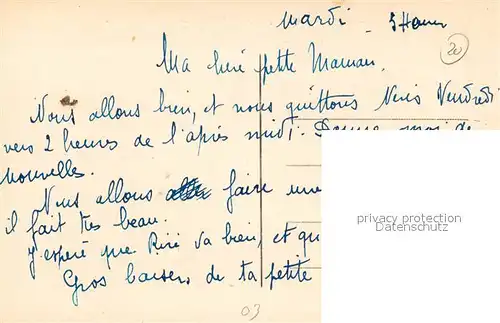 Mardi - 5 Heures
20
Ma chéré petite Maman.
Nous allons bien, et nous quittons Néris Vendredi
vers 2 heures de l'après midi. Donne moi de
nouvelles.
Nous allons faire une
il fait très beau.
J'espère que Riri va bien, et qu
Gros baisers de ta petite
03
privacy protection
Datenschutz